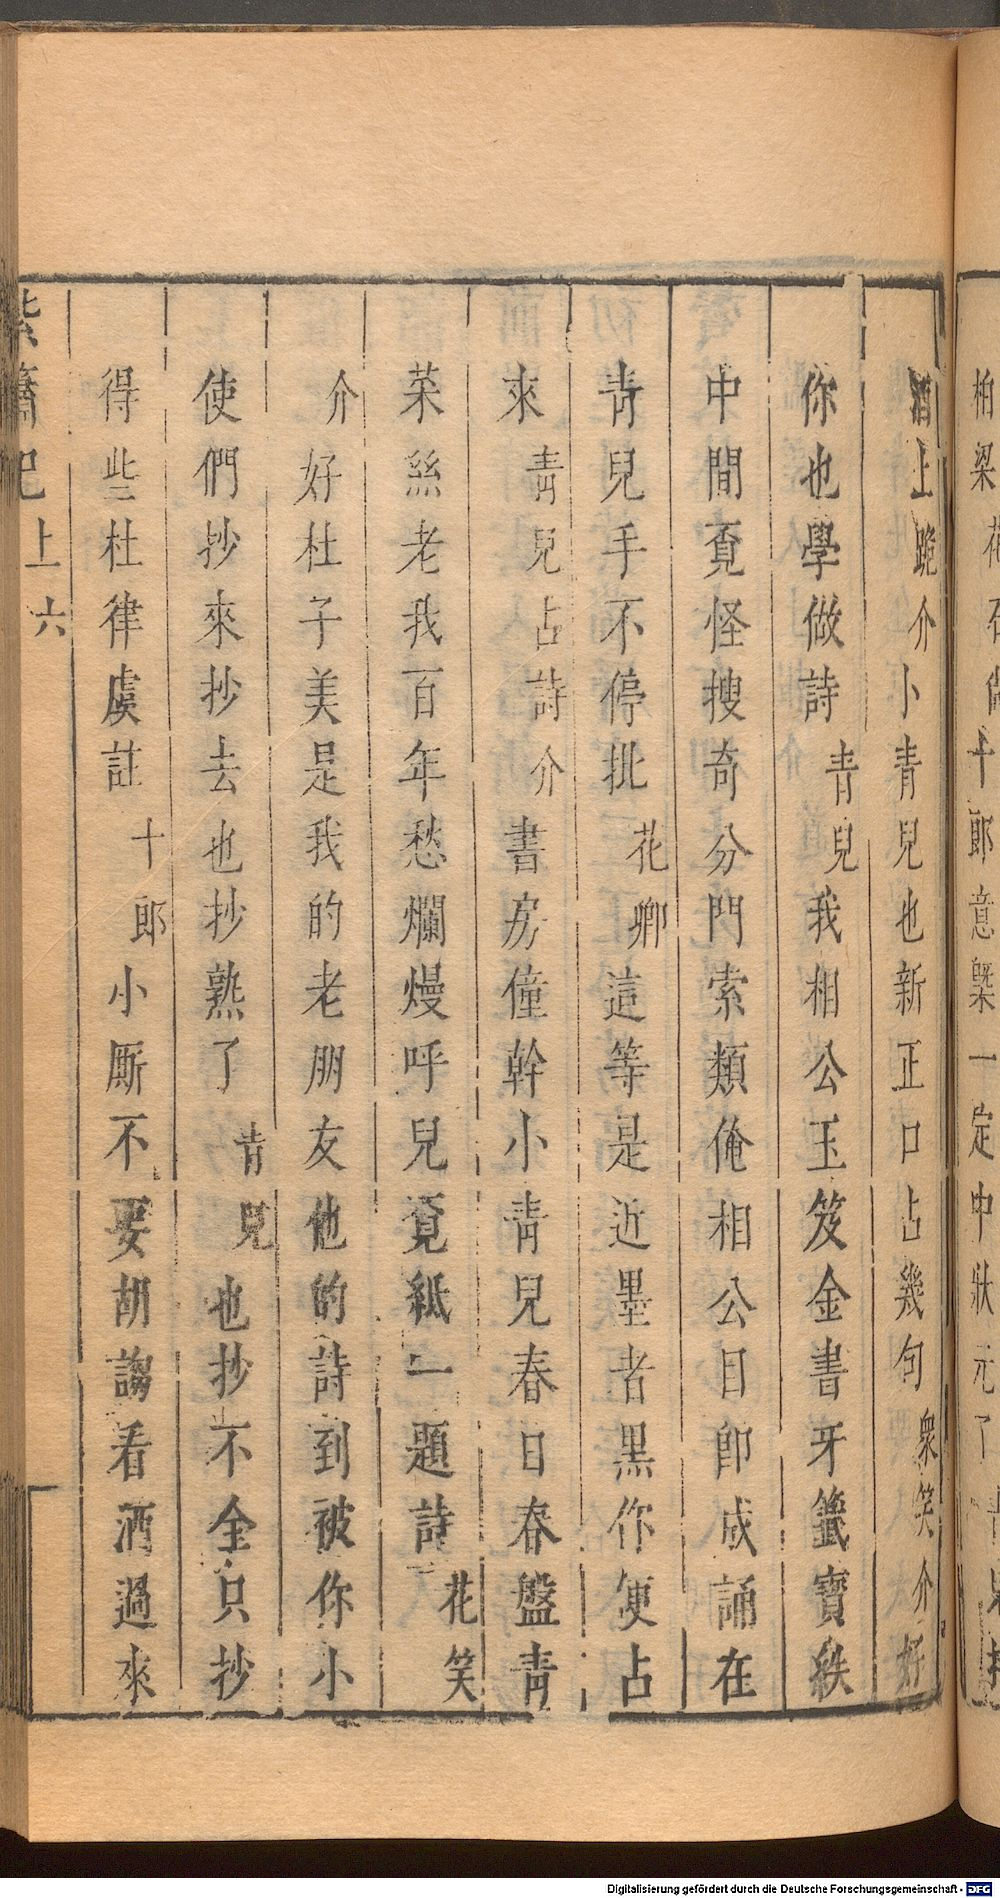 酒上跪介卜青兒也新正口占幾句衆笑介好
你也學做詩青兒我相公玉笈金書牙籤寶紩
中間覔怪搜奇分門索類俺相公目卽成誦在
靑兒手不停批花卿這等是近墨者黑你便占
來靑兒占詩介書房僮幹小靑兒春日春盤靑
菜絲老我百年愁爛熳呼兒覔紙一題詩花笑
介好杜子美是我的老朋友他的詩到被你小
使們抄來抄去也抄熟了青兒也抄不全只抄
得些杜律虞註十郎小厮不要胡謅看酒過來
紫簫記上六
柏梁
十郎意槩一定中狀元了
Digitalisierung gefördert durch die Deutsche Forschungsgemeinschaft - DFG